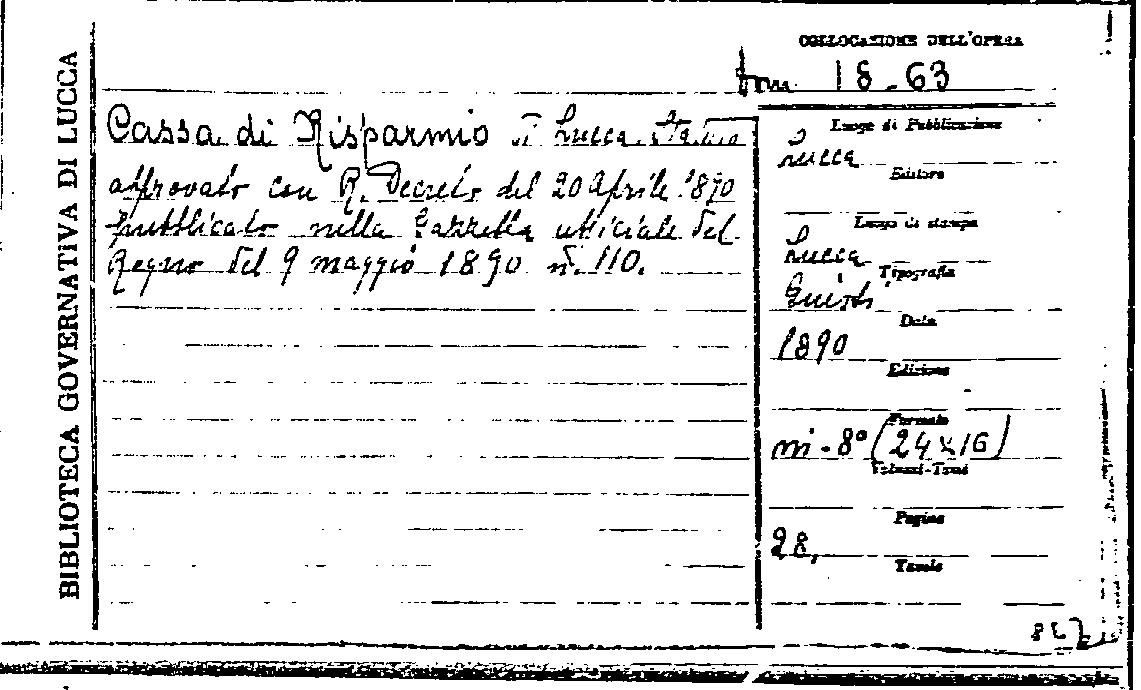 BIBLIOTECA GOVERNATIVA DI LUCCA
COLLOCAZIONE DELL'OPERA
18-63
Cassa di Risparmio di Lucca. Statuto
approvato con R. Decreto del 20 Aprile 1890
pubblicato nella Gazzetta ufficiale del
Regno del 9 maggio 1890 n. 110.
Luogo di Pubblicazione
Lucca
Editore
Luogo di stampa
Lucca
Tipografia
Giusti
Data
1890
Edizione
Formato
in-8° (24x16)
Volumi-Tomi
Pagine
28,
Tavole